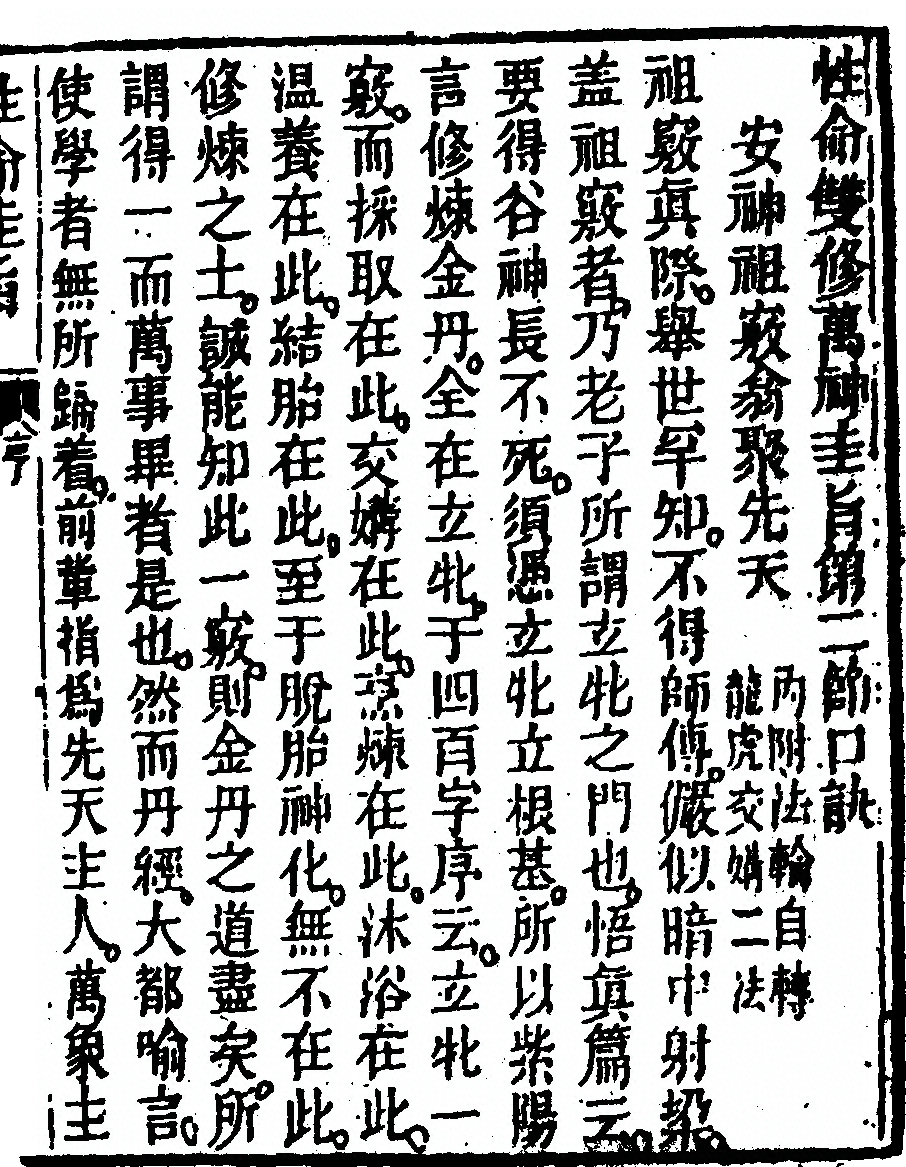 性命雙修萬神圭旨第二節口訣
安神祖竅翕聚先天
內附法輪自轉
龍虎交媾二法
祖竅眞際舉世罕知不得師傳儼似暗中射垜
盖祖竅者乃老子所謂玄牝之門也悟眞篇云
要得谷神長不死須憑玄牝立根基所以紫陽
言修煉金丹全在玄牝于四百字序云玄牝一
竅而採取在此交媾在此烹煉在此沐浴在此
温養在此結胎在此至于脫胎神化無不在此
修煉之士誠能知此一竅則金丹之道盡矣所
謂得一而萬事畢者是也然而丹經大都喻言
使學者無所歸着前輩指爲先天主人萬象主